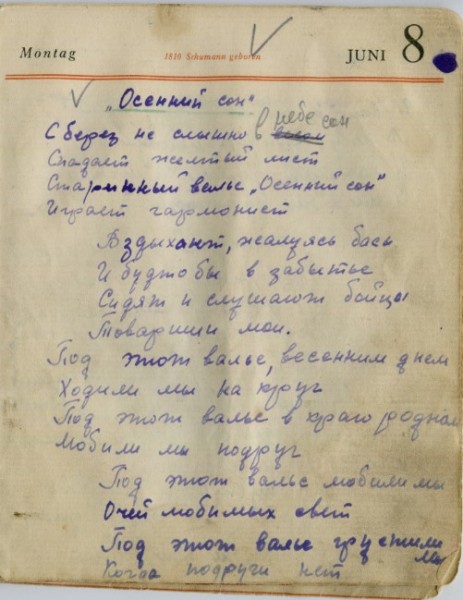 Montag
1810 Schumann geboren
JUNI 8
„Осенний сон"
С берез не слышно в небе сон
Спадает желтый лист
Старинный вальс „Осенний сон"
Играет гармонист
Вздыхают, жалуясь басы
И будто бы в забытье
Сидят и слушают бойцы
Товарищи мои.
Под этот вальс, весенним днем
Ходили мы на круг
Под этот вальс в краю родном
Любили мы подруг
Под этот вальс любили мы
Очей любимых свет
Под этот вальс грустили
мы
Когда подруги нет